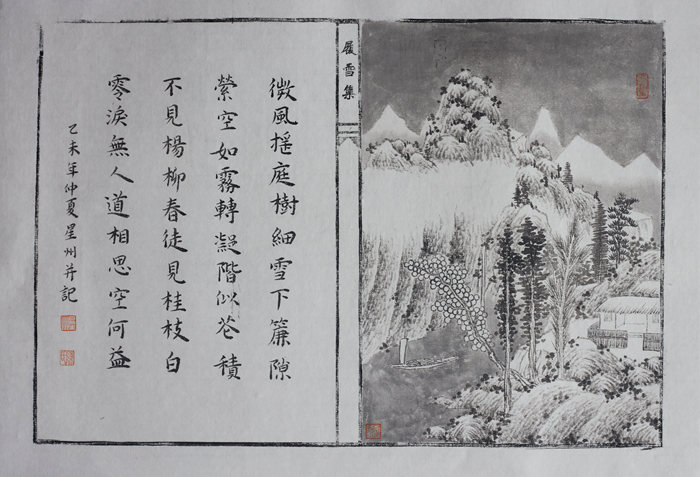 履雪集
微風搖庭樹細雪下簾隙
縈空如霧轉凝階似花積
不見楊柳春徒見桂枝白
零淚無人道相思空何益
乙未年仲夏星州并記